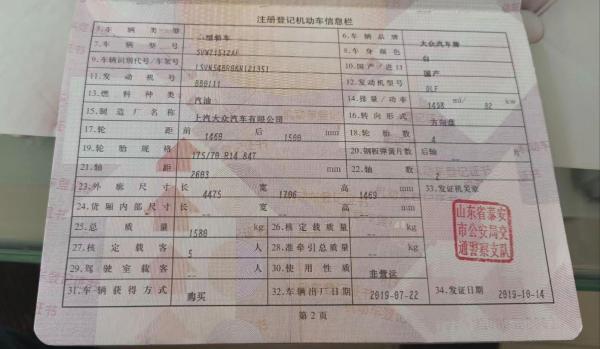 注册登记机动车信息栏
5.车辆类型 6.车辆品牌 大众汽车牌
7.车辆型号 8.车身颜色 白
9.车辆识别代号/车架号 10.国产/进口 国产
11.发动机号 12.发动机型号 DLF
13.燃料种类 汽油 14.排量/功率 1498 ml/ 82 kw
15.制造厂名称 上汽大众汽车有限公司 16.转向形式 方向盘
17.轮距 前 1460 后 1500 mm 18.轮胎数 4
19.轮胎规格 175/70 R14 84T 20.钢板弹簧片数 后轴 --
21.轴距 2603 mm 22.轴数 2
23.外廓尺寸 长 4475 宽 1706 高 1469 mm 33.发证机关章
24.货厢内部尺寸 长 -- 宽 -- 高 -- mm
25.总质量 1580 kg 26.核定载质量 -- kg
27.核定载客 5 人 28.准牵引总质量 -- kg
29.驾驶室载客 -- 人 30.使用性质 非营运
31.车辆获得方式 购买 32.车辆出厂日期 2019-07-22 34.发证日期 2019-10-14
山东省泰安
市公安局交
通警察支队
第2页